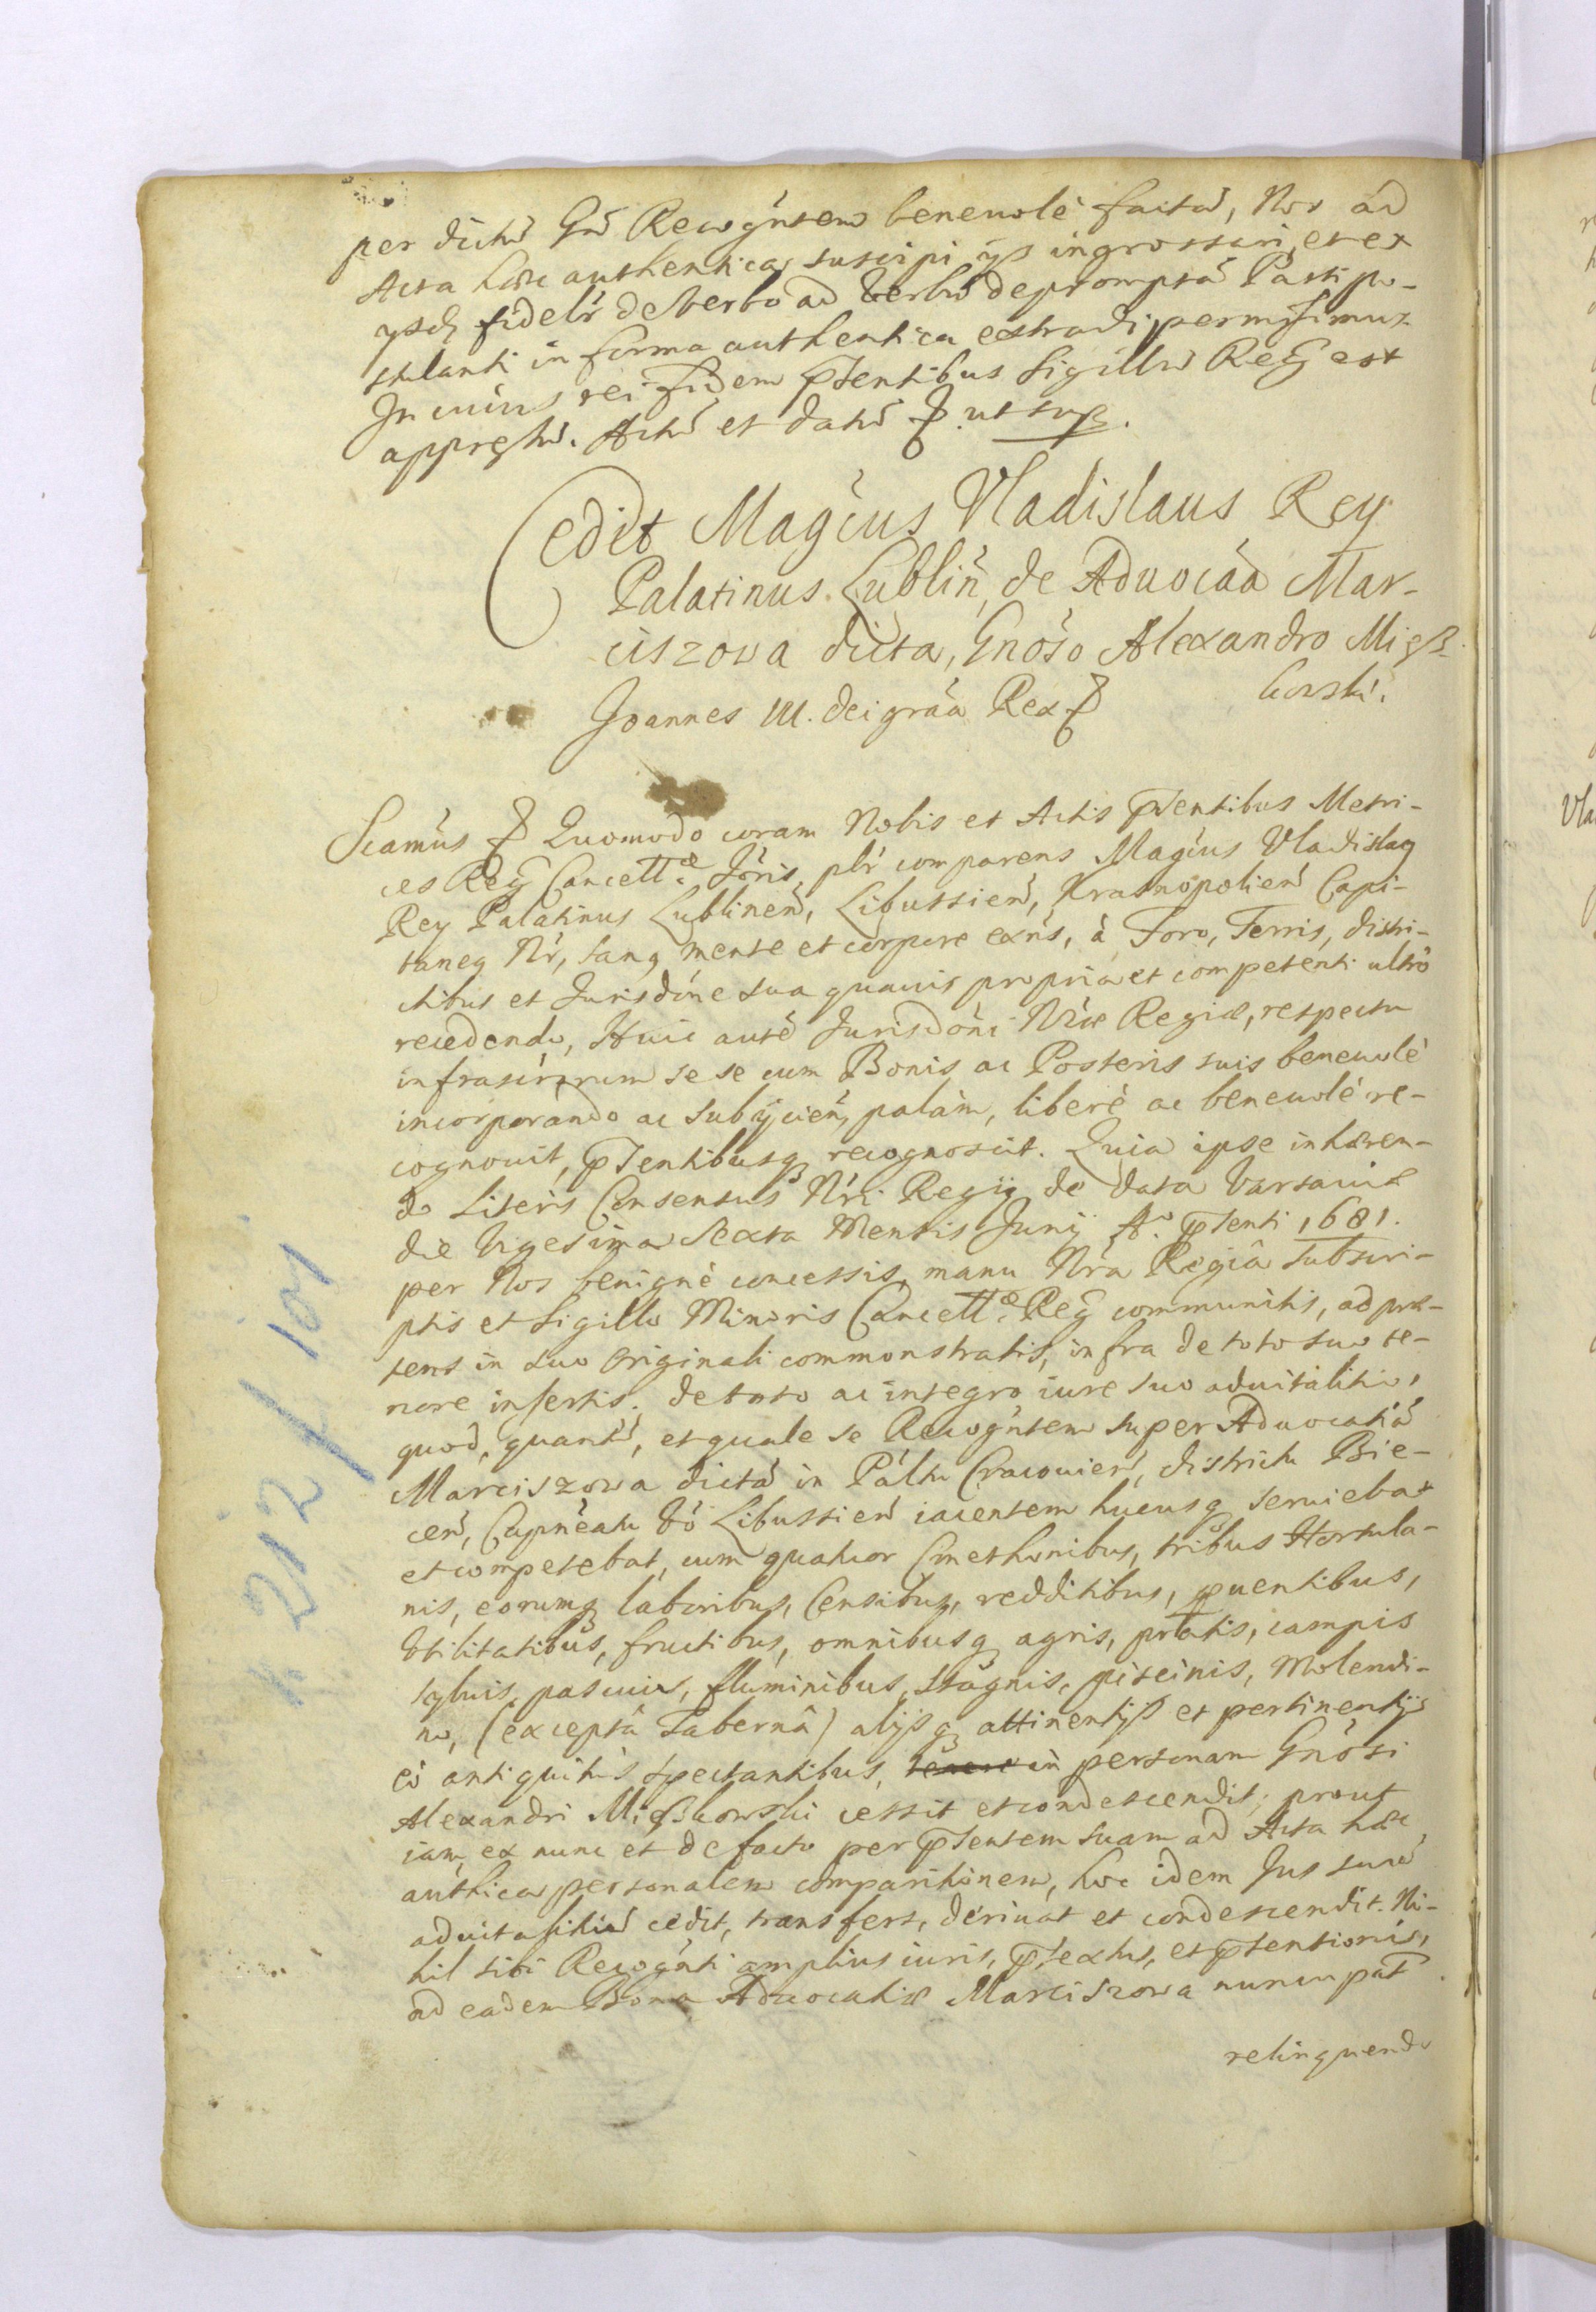 per dictũ Gnũ Recogńtem beneuolè factã, Nos ad
Acta hæc authentica suscipi ijs ingrossari, et ex
ijsdẽ fidelr̃ de Verbo ad Verbũ depromptã Parti po-
stulanti in forma authentica extradi permisimus
In cuius rei fidem p̃ntibus Sigillũ Regñ est
appressũ. Actũ et datũ ꝑ ut supᵃ.
Cedit Magćus Vladislaus Rey
Palatinus Lubliñ, de Aduocãa Mar-
ciszowa dicta, Gnóso Alexandro Mierz-
howski.
Joannes III. Dei grãa Rex ꝑ
Scamús ꝑ Quomodo coram Nobis et Actis p̃sentibus Metri-
ces Regñ Cancellᵃᵉ Jóris, plr̃ comparens Magćus Vladislaꝯ
Rey Palatinus Lublineñ, Libussieñ, Krasnopolieñ Capi-
taneꝯ Nr̃, sanꝯ mente et corpore exńs, à Foro, Terris, distri-
ctibus et Jurisdóne sua quauis propria et competenti ultrò
recedendo, Huic autẽ Jurisdóni Nr̃æ Regiæ, respectu
infrascr̃orum se se cum Bonis ac Posteris suis beneuolè
incorporando ac subijcieñ, palàm, liberè ac beneuolè re-
cognouit, p̃sentibusq̢ recognoscit. Quia ipse inhæren-
do Literis Consensus Nr̃i Regij de data Varsauiæ
die Vigesima Sexta Mensis Junij Aᵒ. p̃senti 1681.
per Nos benignè concessis, manu Nr̃a Regia subscri-
ptis et Sigillo Minoris Cancellᵃᵉ Regñ communitis, ad præ-
sens in suo Originali commonstratis, infra de toto suo te-
nore insertis. de toto ac integro iure suo aduitalitio,
quod, quantũ, et quale se Recogńtem super Aduocatiã
Marciszowa dictã in Paltu Cracouieñ, districtu Bie-
ceñ, Capneatu vó Libussieñ iacentem hucusq̢ seruiebat
et competebat, cum quatuor Cmethonibus, tribus Hortula-
nis, eorumq̢ laboribus, Censibus, redditibus, puentibus,
Vtilitatibus, fructibus, omnibusq̢ agris, pratis, campis
syluis, pascuis, fluminibus, Stagnis, piscinis, Molendi-
no, (exceptâ Tabernâ) alijsq̢ attinentijs et pertinentijs
eò antiquitus spectantibus, in personam Gnósi
Alexandri Mierzhowski cessit et condescendit; prout
iam ex nunc et de facto per p̃sentem suam ad Acta hæc
authica personalem comparitionem, hoc idem Jus suũ
aduitalitiũ cedit, transfert, deriuat et condescendit. Ni-
hil sibi Recogńti amplius iuris, p̃textus, et p̃tensionis,
ad eadem Bona Aduocatiæ Marciszowa nuncupat
relinquendo